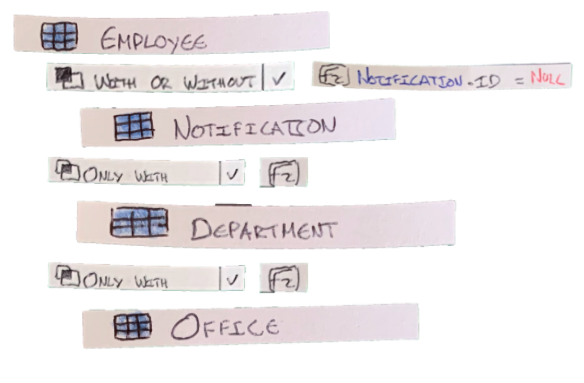 EMPLOYEE
WITH OR WITHOUT NOTIFICATION.ID = NULL
NOTIFICATION
ONLY WITH
DEPARTMENT
ONLY WITH
OFFICE